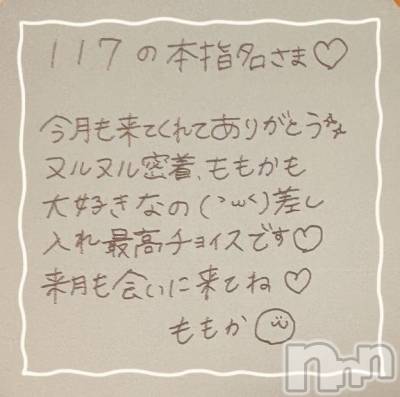 117の本指名さま♡
今月も来てくれてありがとう
ヌルヌル密着、ももかも
大好きなの(・ω<)差し
入れ最高チョイスです♡
来月も会いに来てね♡
ももか
nnn